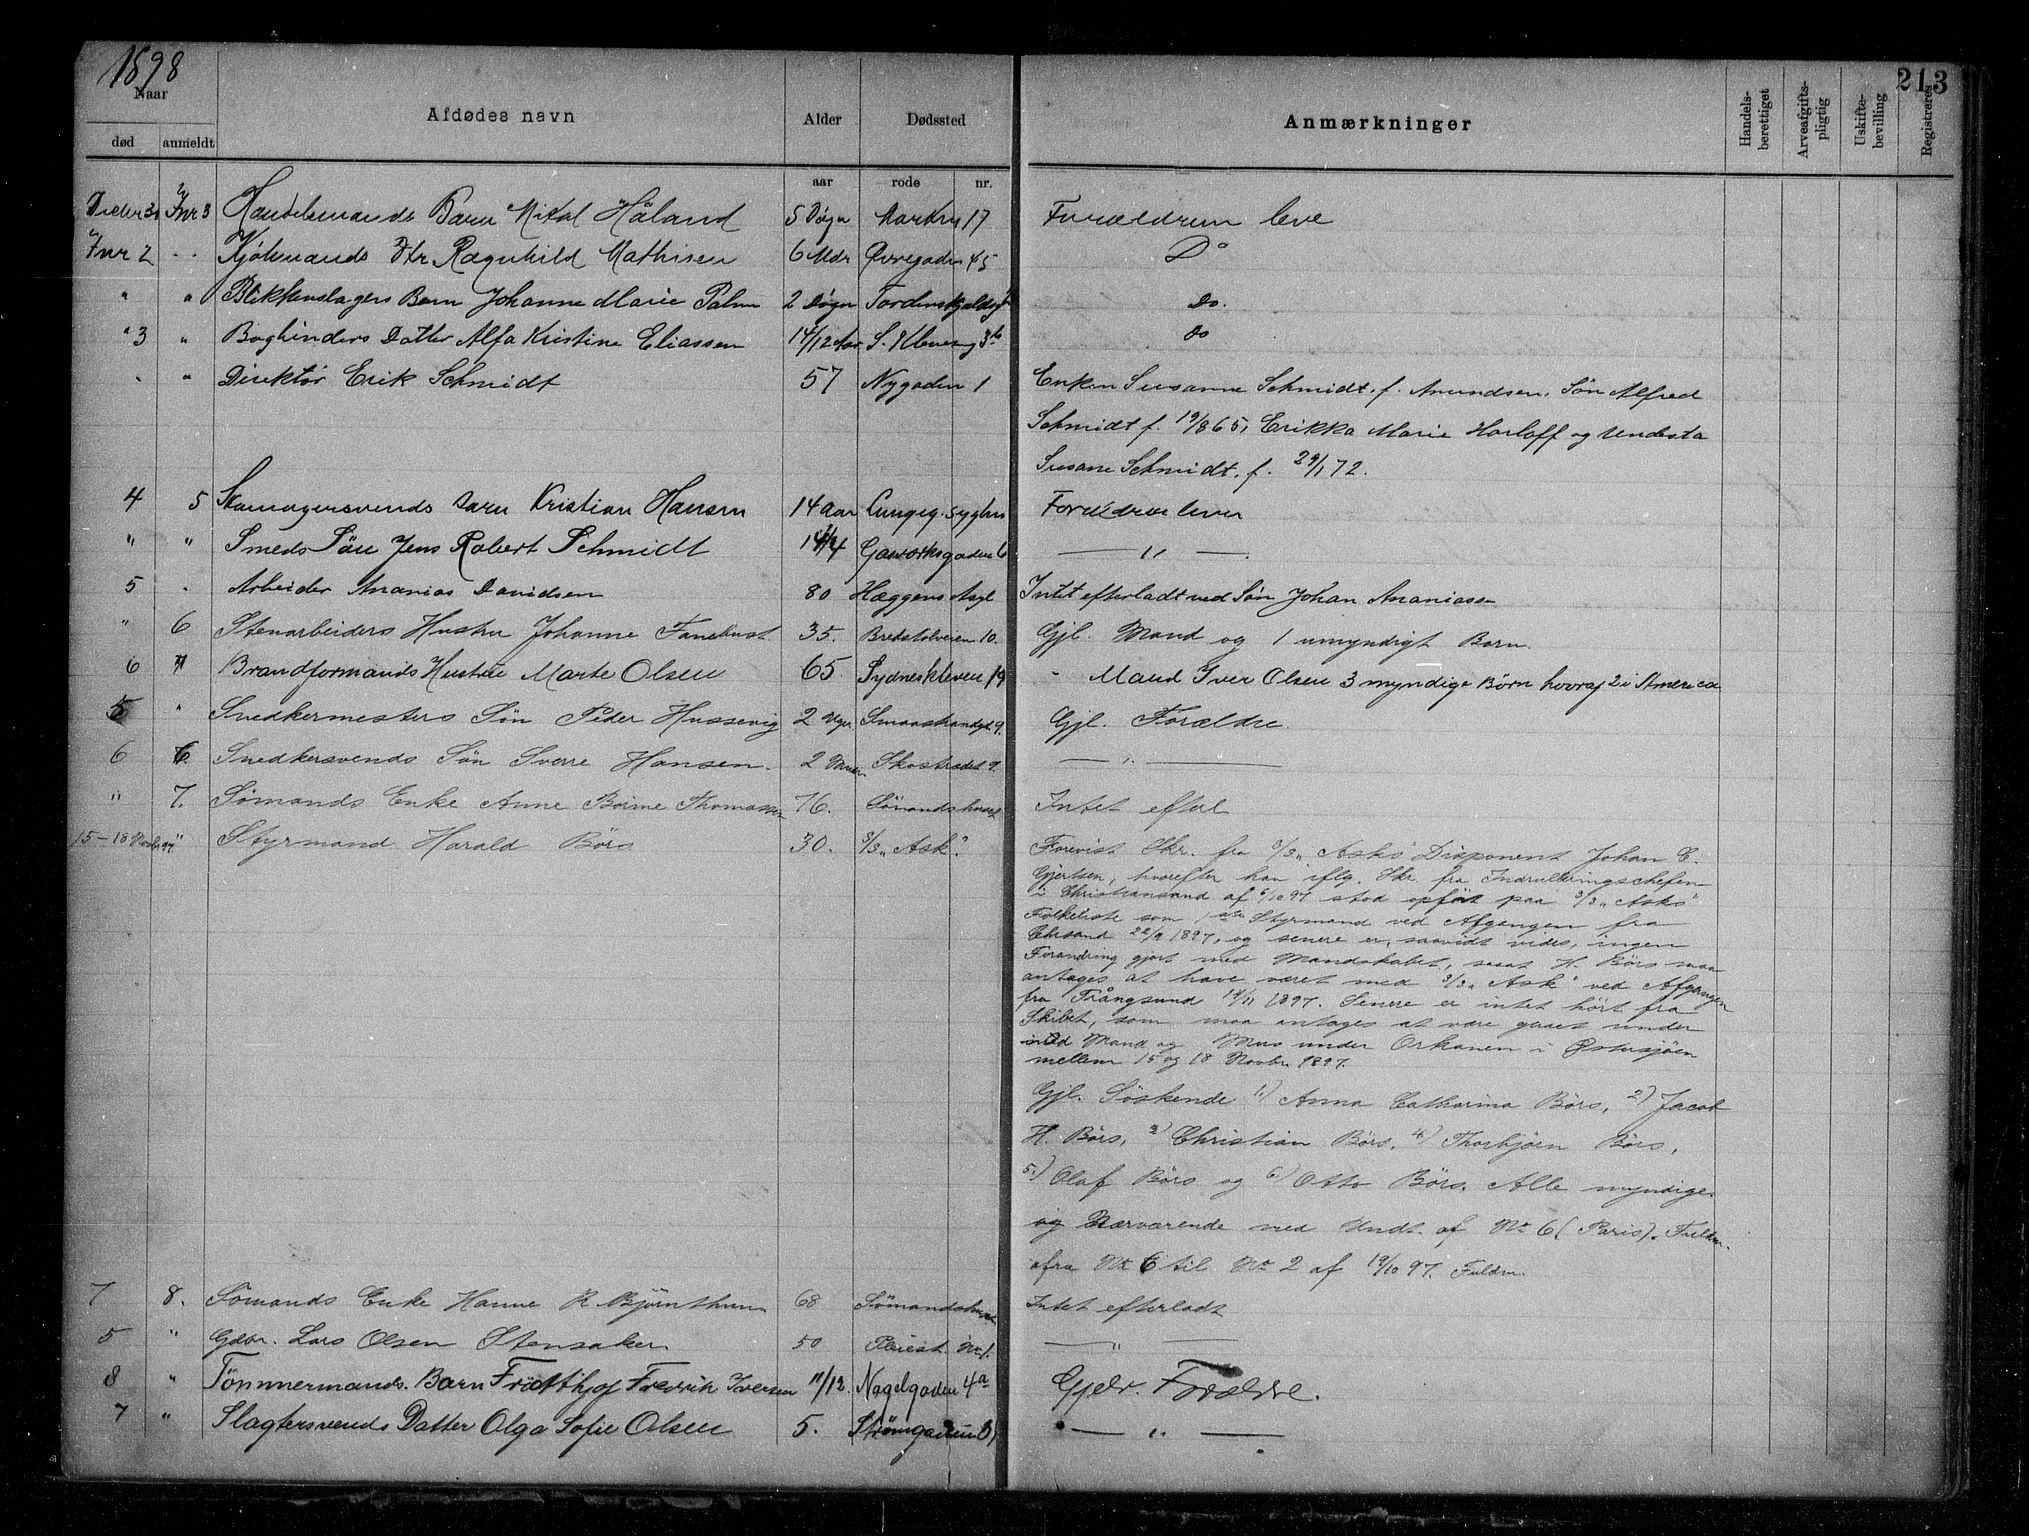 1898
213
Naar
død anmeldt
Afdødes navn
Alder
Dødssted
Anmærkninger
Handels-berettiget
Arveafgifts-pligtig
Uskifte-bevilling
Registreres
aar rode nr.
Decbr 31 Jnr 3 Handelsmands Barn Håland 5 Døgn 17 Forældrene leve
Jnr 2 " Kjøbmands Dtr Ragnhild Mathisen 6 Mdr Øvregaden 45 Do
" " Blikkenslagers Barn Johanne Marie Palm 2 Døgn Do.
" 3 " Bogbinders Datter Alfa Kristine Eliassen 14/12 Aar do
" " Direktør Erik Schmidt 57 Nygaden 1 Enken Susanne Schmidt f. Amundsen, Søn Alfred
Schmidt f. 19/8 65, Erikka Marie Horloff og
Susane Schmidt. f. 29/1 72.
4 5 Barn Kristian Hansen 14 aar Lungeg. Syghus Forældrene lever
" " Smeds Søn Jens Robert Schmidt Gasværksgaden 6 — " —
5 " Arbeider Ananias Davidsen 80 Hæggens Asyl Intet efterladt ved Søn Johan Ananiassen
" 6 Stenarbeiders Hustru Johanne Fanebust 35. Bredstolveien 10. Gjl. Mand og 1 umyndigt Barn.
6 " Brandformands Hustru Marte Olsen 65. Sydneskleven 19 " Mand Iver Olsen 3 myndige Børn hvoraf 2 i America
5 " Snedkermesters Søn Peder Hussevig 2 Uger Smaastrandgt 9. Gjl. Forældre.
6 6. Snedkersvends Søn Sverre Hansen. 2 Skostrædet 9. — " —
" 7. Sømands Enke Anne Thomassen 76. Sømandshuset Intet efterl
15 – 18 Novbr 97 " Styrmand Harald Børs 30. S/S „Ask". Forevist Skr. fra S/S „Asks" Disponent Johan C.
Gjertsen, hvorefter han iflg. Skr. fra Indrulleringschefen
i Christiansand af 6/12 97 stod opført paa S/S „Asks"
Folkeliste som 1ste Styrmand ved Afgangen fra
Chrsand 22/9 1897, og senere er, saavidt vides, ingen
Forandring gjort med Mandskabet, saaat H. Børs maa
antages at have været med S/S „Ask" ved Afgangen
fra Trångsund 14/11 1897. Senere er intet hørt fra
Skibet, som maa antages at være gaaet under
med Mand og Mus under Orkanen i Østersjøen
mellem 15 og 18 Novbr 1897.
Gjl. Søskende 1) Anna Catharina Børs, 2) Jacob
H. Børs, 3) Christian Børs, 4) Thorbjørn Børs,
5) Olaf Børs og 6) Otto Børs. Alle myndige
og Nærværende med Undt. af No 6 (Paris). Fuldm.
fra No 6 til No 2 af 19/10 97. Fuldm.
7 8. Sømands Enke Hanne R. 68 Sømandshuset Intet efterladt
5 " Gdbr. Lars Olsen Stensaker 50 Pleiest. No 1. — " —
8 " Tømmermands Barn Fredrik Iversen 11/12. Nagelgaden 4a Gjelv. Forældre.
7 " Slagtersvends Datter Olga Sofie Olsen 5. Strømgaden — " —